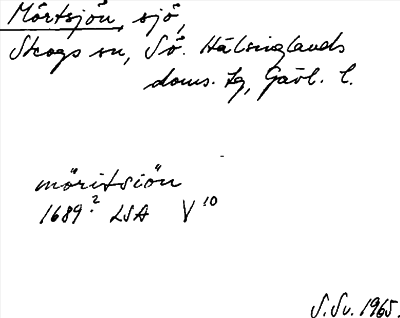 Mörtsjön, sjö,
Skogs sn, Sö. Hälsinglands
doms. tg, Gävl. l.
möritsiön
1689? LSA V 10
S. Sv. 1965.